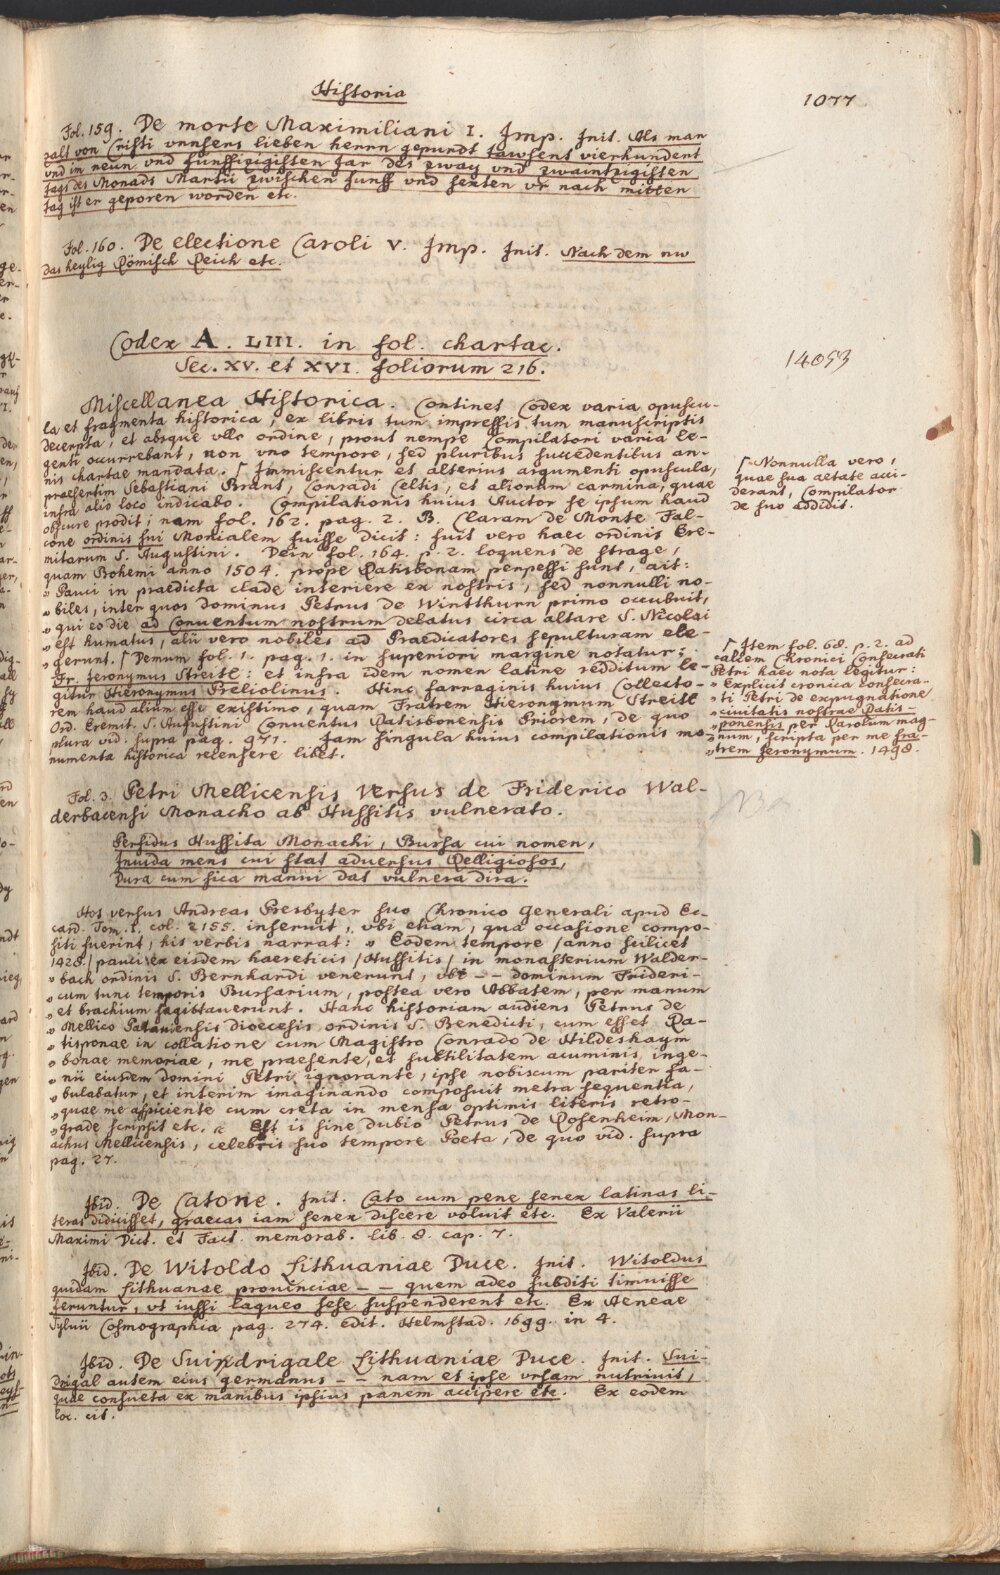 Historia
1077
Fol. 159. De morte Maximiliani I. Imp. Init. Als man
zalt von Cristi vnnsers lieben herrn gepurdt tawsent vierhundent
vnd im neun vnd funffizigisten Jar des zway vnd zwaintzigisten
tags des Monads Martii zwischen funff vnd sexten vr nach mitten
tag ist er geporen worden etc.
Fol. 160. De electione Caroli V. Imp. Init. Nach dem nw
das heylig Römisch Reich etc.
Codex A. LIII. in fol. chartac.
Sec. XV. et XVI. foliorum 216.
14053
Miscellanea Historica. Continet Codex varia opuscu-
la et fragmenta historica, ex libris tum impressis tum manuscriptis
decerpta, et absque vllo ordine, prout nempe Compilatori varia le-
genti occurrebant, non vno tempore, sed pluribus succedentibus an-
nis chartae mandata. ſ Immiscentur et alterius argumenti opuscula,
praesertim Sebastiani Brant, Conradi Celtis, et aliorum carmina, quae
infra alio loco indicabo. Compilationis huius Auctor se ipsum haud
obscure prodit; nam fol. 162. pag. 2. B. Claram de Monte Fal-
cone ordinis sui Monialem fuisse dicit: fuit vero haec ordinis Ere-
mitarum S. Augustini. Dein fol. 164. p. 2. loquens de strage,
quam Bohemi anno 1504. prope Ratisbonam perpessi sunt, ait:
„ Pauci in praedicta clade interiere ex nostris, sed nonnulli no-
„ biles, inter quos dominus Petrus de Wintthurn primo occubuit,
„ qui eo die ad Conuentum nostrum delatus circa altare S. Nicolai
„ est humatus, alii vero nobiles ad Praedicatores sepulturam ele-
„ gerunt. ſ Demum fol. 1. pag. 1. in superiori margine notatur:
Fr. Jeronymus Streitl: et infra idem nomen latine redditum le-
gitur Hieronymus Preliolinus. Hinc farraginis huius Collecto-
rem haud alium esse existimo, quam Fratrem Hieronymum Streitl
Ord. Eremit. S. Augustini Conuentus Ratisbonensis Priorem, de quo
plura vid. supra pag. 971. Jam singula huius compilationis mo-
numenta historica recensere libet.
ſ Nonnulla vero,
quae sua aetate acci-
derant, Compilator
de suo addidit.
ſ Item fol. 68. p. 2. ad
calcem Chronici Consecrati
Petri haec nota legitur:
„ Explicit cronica consecra-
„ ti Petri de expugnatione
„ ciuitatis nostrae Ratis-
„ ponensis per Karolum mag-
„ num, scripta per me fra-
„ trem Jeronymum. 1498.
Fol. 3. Petri Mellicensis Versus de Friderico Wal-
derbacensi Monacho ab Hussitis vulnerato.
Persidus Hussita Monachi, Bursa cui nomen,
Inuida mens cui stat aduersus Relligiosos,
Dura cum sica manui dat vulnera dira.
Hos versus Andreas Presbyter suo Chronico Generali apud Ec-
card. Tom. I. col. 2155. inseruit, vbi etiam, qua occasione compo-
siti fuerint, his verbis narrat: „ Eodem tempore /anno scilicet
1428./ pauci ex eisdem haereticis /Hussitis/ in monasterium Walder-
„ bach ordinis S. Bernhardi venerunt, vbi – – dominum Frideri-
„ cum tunc temporis Bursarium, postea vero Abbatem, per manum
„ et brachium sagittauerunt. Hanc historiam audiens Petrus de
„ Mellico Patauiensis dioecesis ordinis S. Benedicti, cum esset Ra-
„ tisponae in collatione cum Magistro Conrado de Hildeshaym
„ bonae memoriae, me praesente, et subtilitatem acuminis inge-
„ nii eiusdem domini Petri ignorante, ipse nobiscum pariter fa-
„ bulabatur, et interim imaginando composuit metra sequentia,
„ quae me aspiciente cum creta in mensa optimis literis retro-
„ grade scripsit etc. „ Est is sine dubio Petrus de Rosenheim, Mon-
achus Mellicensis, celebris suo tempore Poeta, de quo vid. supra
pag. 27.
Ibid. De Catone. Init. Cato cum pene senex latinas li-
teras didicisset, graecas iam senex discere voluit etc. Ex Valerii
Maximi Dict. et Fact. memorab. lib. 8. cap. 7.
Ibid. De Witoldo Lithuaniae Duce. Init. Witoldus
quidam Lithuanae prouinciae – – quem adeo subditi timuisse
feruntur, vt iussi laqueo sese suspenderent etc. Ex Aeneae
Syluii Cosmographia pag. 274. edit. Helmstad. 1699. in 4.
Ibid. De Suidrigale Lithuaniae Duce. Init. Sui-
drigal autem eius germanus – – nam et ipse vrsam nutriuit,
quae consueta ex manibus ipsius panem accipere etc. Ex eodem
loc. cit.